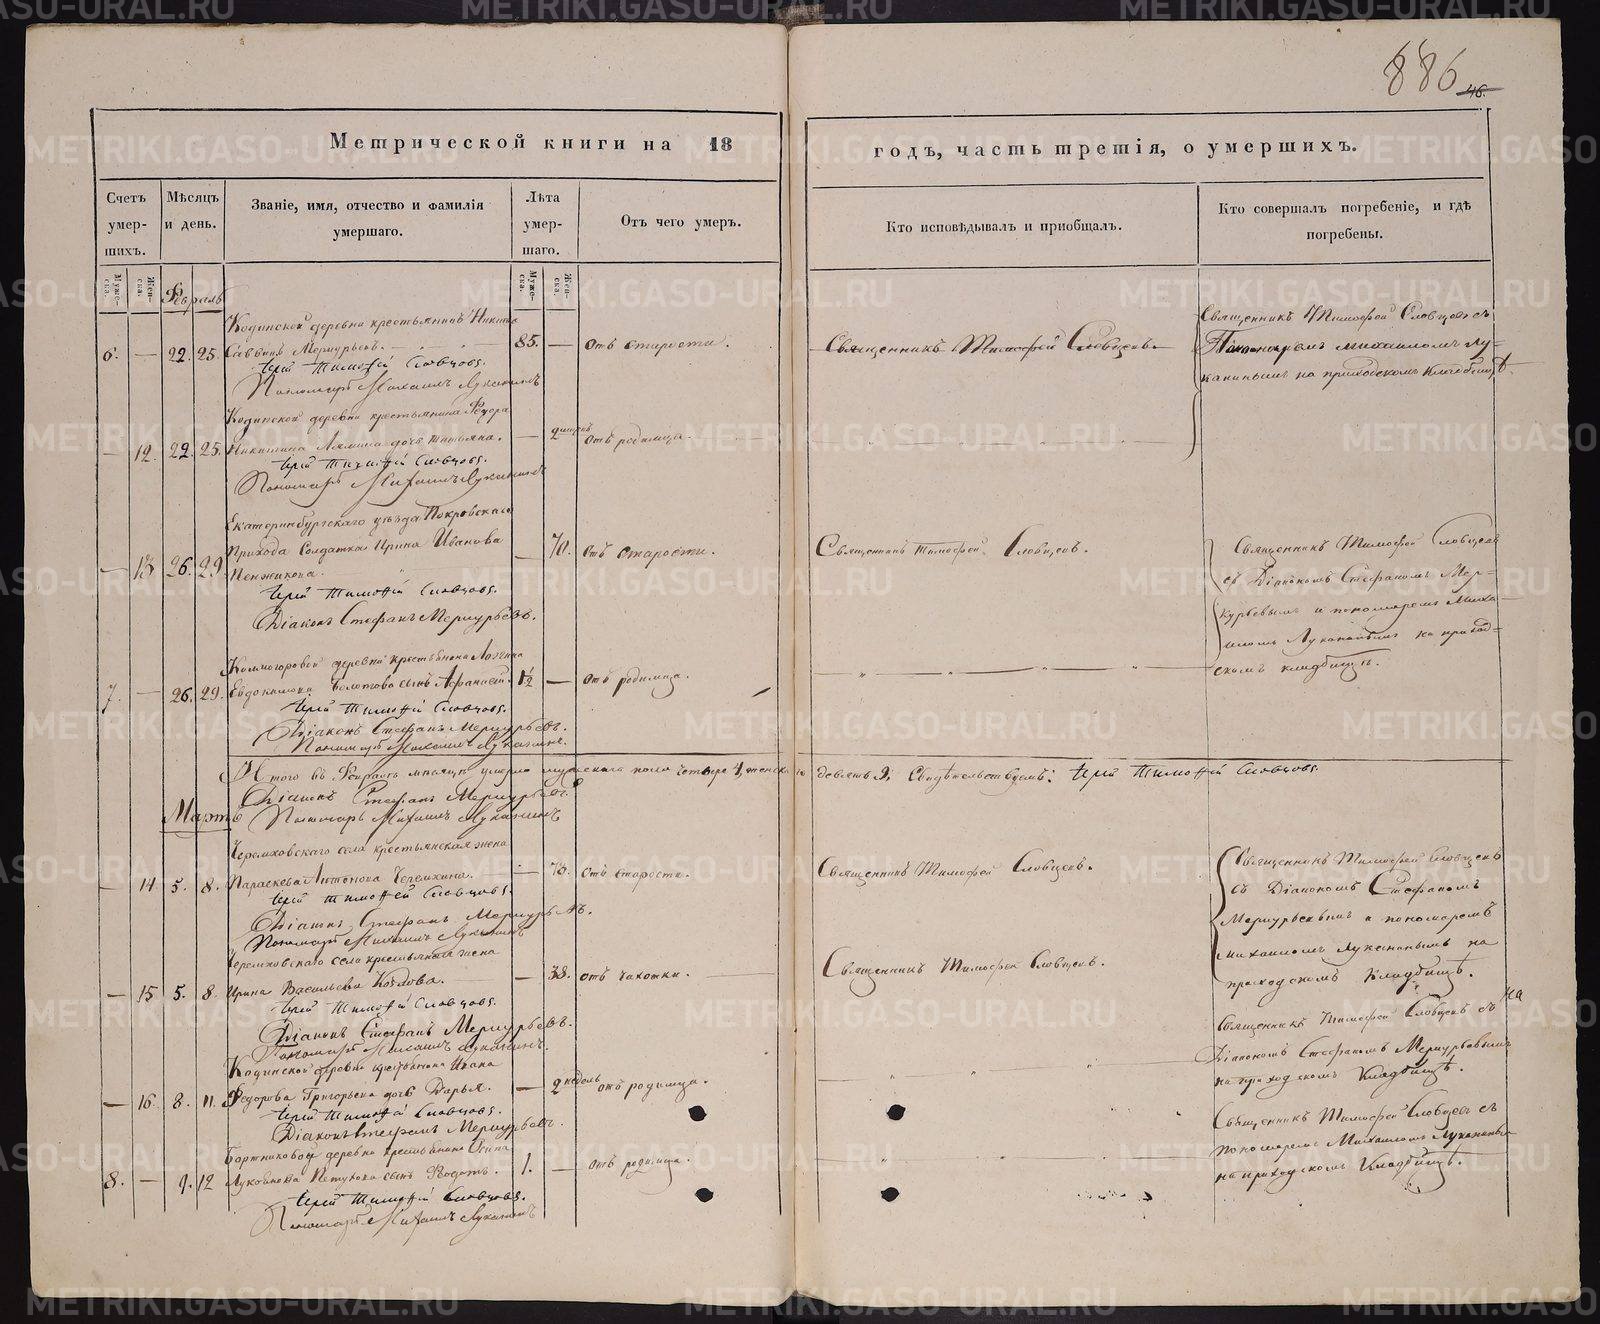 886
46.
Метрической книги на 18
годъ, часть третія, о умершихъ.
Счетъ умер-шихъ.
Мѣсяцъ и день.
Званіе, имя, отчество и фамилія умершаго.
Лѣта умер-шаго.
Отъ чего умеръ.
Кто исповѣдывалъ и пріобщалъ.
Кто совершалъ погребеніе, и гдѣ погребены.
Муже-ска.
Жен-ска.
Муже-ска.
Жен-ска.
Февраль
Кодинской деревни крестьянинъ Никита
6. — 22. 25. Саввинъ Меркурьевъ. 85. — Отъ старости.
Іерей Тимофей Словцовъ.
Пономарь Михаилъ Луканинъ
Священникъ Тимофей Словцовъ.
Священникъ Тимофей Словцовъ съ
Пономаремъ Михаиломъ Лу-
канинымъ на приходскомъ кладбищѣ
Кодинской деревни крестьянина Федора
— 12. 22. 25. Никитина дочь Татьяна. — отъ родимца.
Іерей Тимофей Словцовъ.
Пономарь Михаилъ Луканинъ
Екатеринбургскаго уѣзда Покровскаго
— 13 26. 29 Прихода Солдатка Ирина Иванова — 70. отъ старости.
Іерей Тимофей Словцовъ.
Діаконъ Стефанъ Меркурьевъ.
Священникъ Тимофей Словцовъ.
Священникъ Тимофей Словцовъ
съ Діакономъ Стефаномъ Мер-
курьевымъ и пономаремъ Миха-
иломъ Луканинымъ на приход-
скомъ кладбищѣ.
Колмогоровой деревни крестьянина
7. — 26. 29. Евдокимова Болотова сынъ Афанасій. 1½ — отъ родимца.
Іерей Тимофей Словцовъ.
Діаконъ Стефанъ Меркурьевъ.
Пономарь Михаилъ Луканинъ.
Итого въ Февралѣ мѣсяцѣ умерло мужеска пола четыре 4, женска девять 9. Свидѣтельствуемъ: Іерей Тимофей Словцовъ
Діаконъ Стефанъ Меркурьевъ
Мартъ
Пономарь Михаилъ Луканинъ
Черемховскаго села крестьянская жена
— 14 5. 8. Параскева Антонова Черемхина. — 73. отъ старости.
Іерей Тимофей Словцовъ.
Діаконъ Стефанъ Меркурьевъ.
Пономарь Михаилъ Луканинъ
Священникъ Тимофей Словцовъ.
Священникъ Тимофей Словцовъ
съ Діакономъ Стефаномъ
Меркурьевымъ и пономаремъ
Михаиломъ Луканинымъ на
приходскомъ кладбищѣ.
Черемховскаго села крестьянская жена
— 15 5. 8. Ирина Васильева Козлова. — 38. отъ чахотки.
Іерей Тимофей Словцовъ.
Діаконъ Стефанъ Меркурьевъ.
Пономарь Михаилъ Луканинъ.
Священникъ Тимофей Словцовъ.
Кодинской деревни крестьянина Ивана
— 16. 8. 11. Федорова Григорьева дочь Дарья. — 2 недѣль отъ родимца.
Іерей Тимофей Словцовъ.
Діаконъ Стефанъ Меркурьевъ.
Священникъ Тимофей Словцовъ съ
Діакономъ Стефаномъ Меркурьевымъ
на приходскомъ кладбищѣ.
Бортниковой деревни крестьянина
8. — 9. 12 Петухова сынъ Федотъ. 1. — отъ родимца.
Іерей Тимофей Словцовъ.
Пономарь Михаилъ Луканинъ
Священникъ Тимофей Словцовъ съ
пономаремъ Михаиломъ Луканинымъ
на приходскомъ кладбищѣ.
METRIKI.GASO-URAL.RU